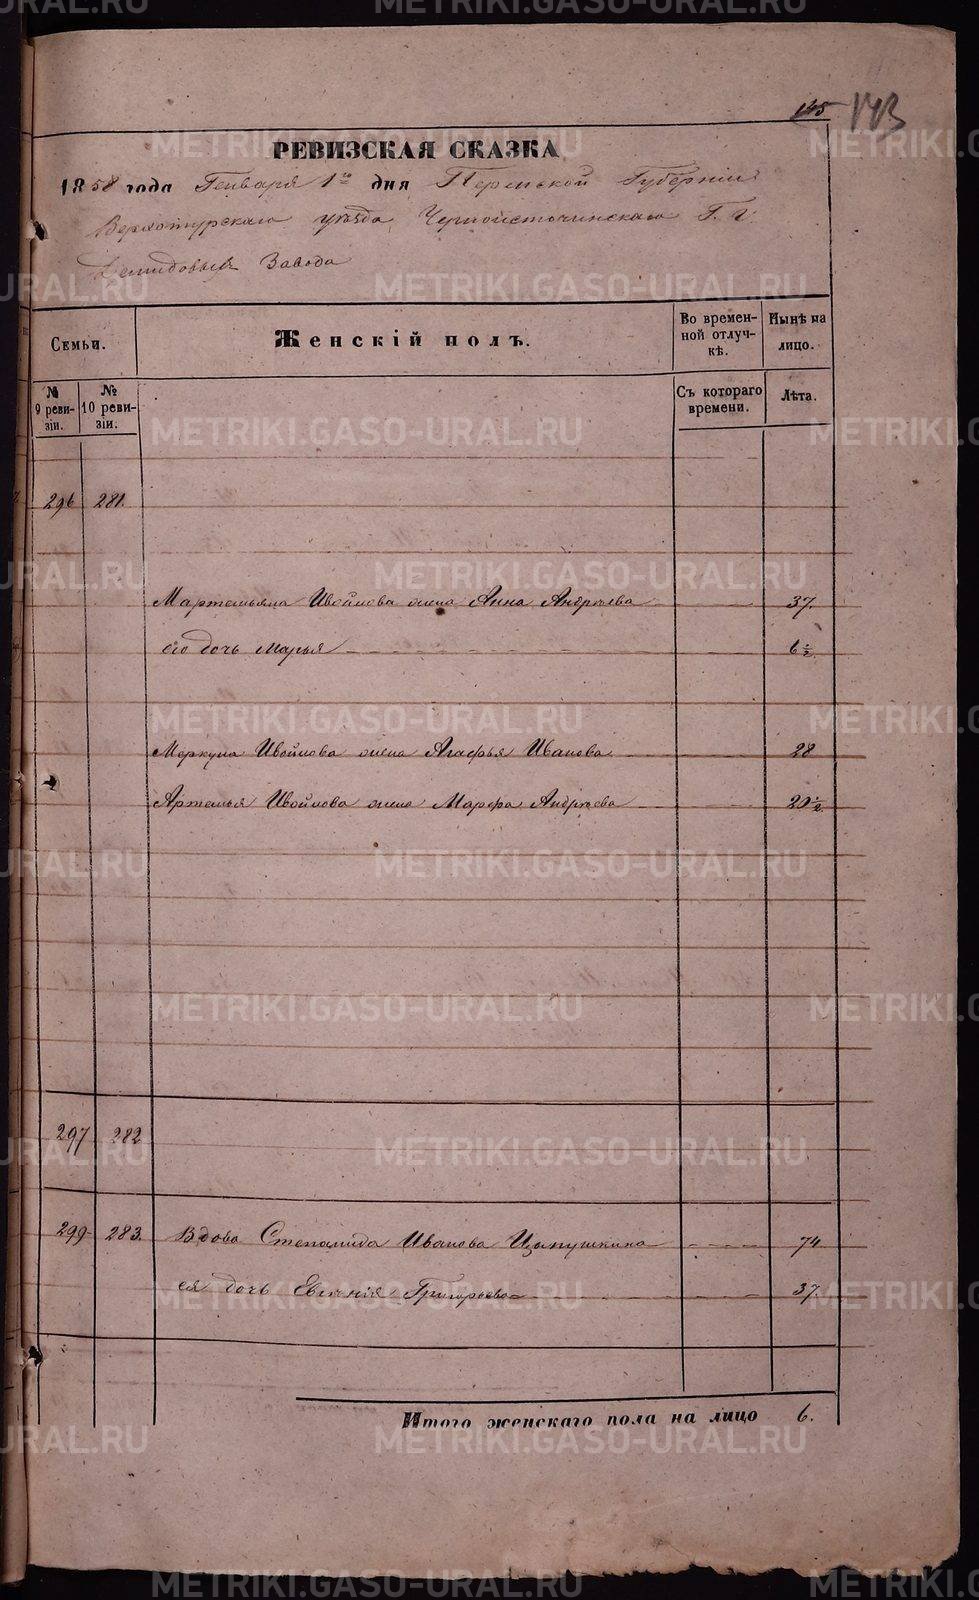 145 143
РЕВИЗСКАЯ СКАЗКА
1858 года Генваря 1го дня Пермской Губернии
Верхотурскаго уѣзда Черноисточинскаго Г. г.
Демидовыхъ Завода
Семьи.
Женскій полъ.
Во времен-
ной отлуч-
кѣ.
Нынѣ на
лицо.
№
9 реви-
зіи.
№
10 реви-
зіи.
Съ котораго
времени.
Лѣта.
296 281.
Мартемьяна Ивойлова жена Анна Андреева 37.
его дочь Марья 6½
Меркула Ивойлова жена Агафья Иванова 28
Артемья Ивойлова жена Марфа Андреева 20½
297 282
299 283. Вдова Степанида Иванова 74
ея дочь Евгенія Григорьева 37.
Итого женскаго пола на лицо 6.
METRIKI.GASO-URAL.RU